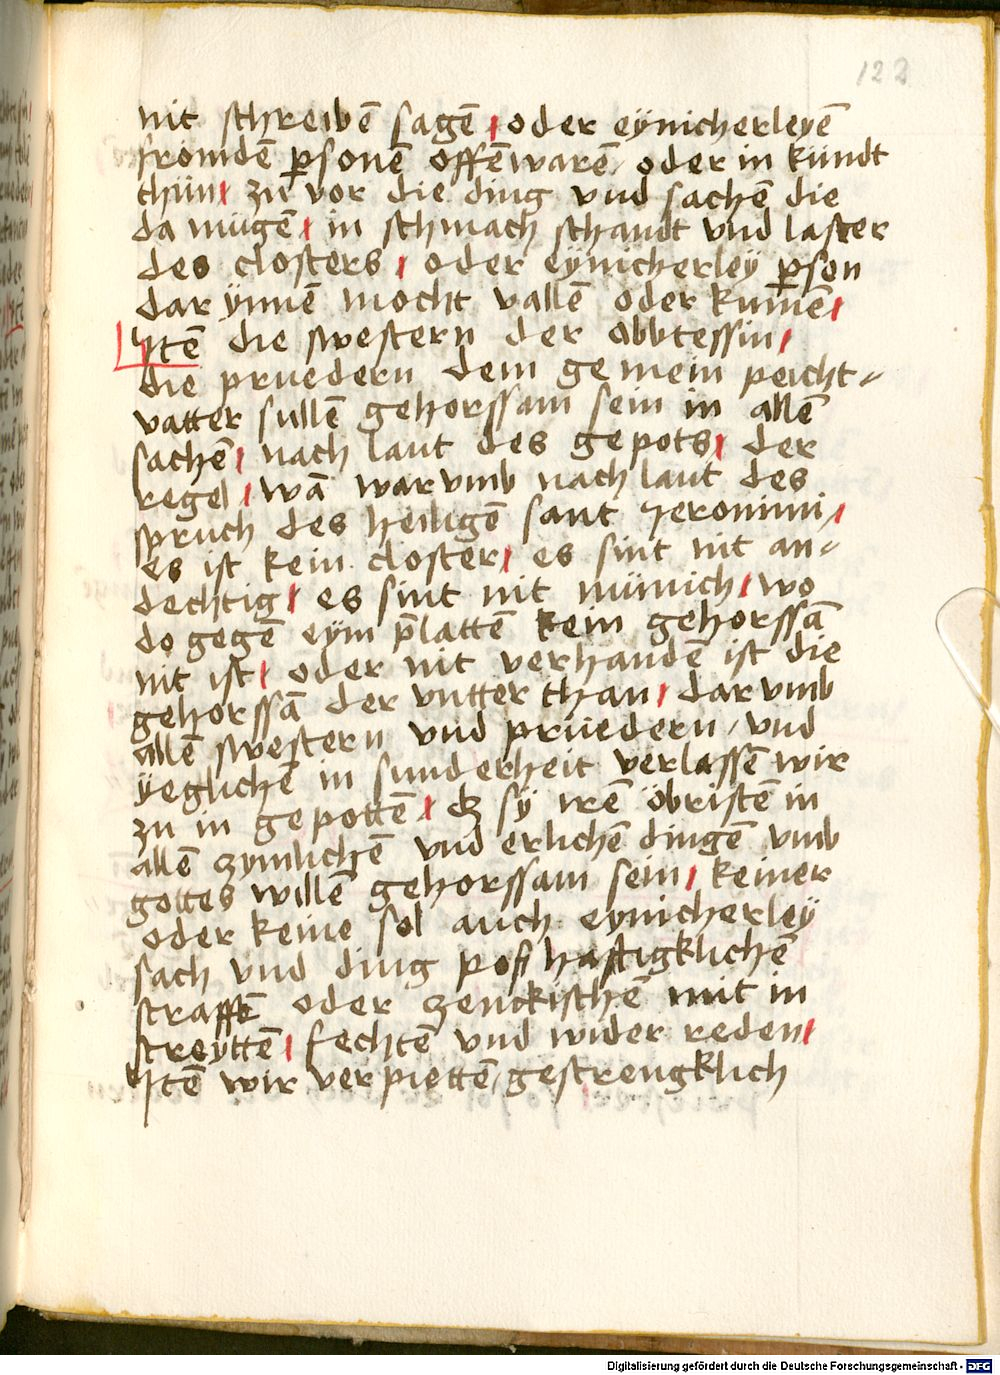 122
nit schreibẽ sagẽ / oder eynicherleyẽ
fromdẽ ꝑsonẽ offẽwarẽ / oder in kündt
thün / zu vor die ding vnd sachẽ die
da mügẽ / in schmach schandt vnd laster
des closters / oder eynicherleÿ ꝑson
dar ÿnnẽ mocht vallẽ oder kumẽ /
Itẽ die swestern der abbtessin /
die pruedern dem gemein peicht⸗
vatter sullẽ gehorssam sein in allẽ
sachẽ / nach laut des gepots / der
regel / wã warvmb nach laut des
spruch des heiligẽ sant Jeronimi /
es ist kein closter / es sint nit an⸗
dechtig / es sint nit münich / wo
do gegẽ eym p̃lattẽ kein gehorssã
nit ist / oder nit verhandẽ ist die
gehorssã der vntter than / darvmb
allẽ swestern vnd prüedern / vnd
ÿeglichẽ in sunderheit verlassẽ wir
zu in gepottẽ / dz sÿ irẽ öbristẽ in
allẽ zymlichẽ vnd erlichẽ dingẽ vmb
gottes willẽ gehorssam sein / keiner
oder keine sol auch eynicherleÿ
sach vnd ding poßhaftigklichẽ
straffẽ oder zenckischẽ mit in
streÿttẽ / fechtẽ vnd wider reden /
Itẽ wir verpiettẽ / gestrengklich
Digitalisierung gefördert durch die Deutsche Forschungsgemeinschaft - DFG